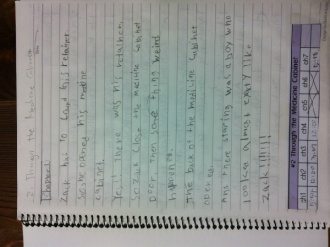 2. Through the Medicine Cabinet
Chapter 1
Zack has to
his retainer
So he opened his medicine
cabinet.
Yes! There was his retainer.
So Zack close the medicine cabinet
Door then some thing weird
happened.
The back of the medicine cabinet
opened
And there staring was a boy who
looked almost exactly like
Zack!!!!!!
#2 Through the Medicine Cabinet
ch1 ch2 ch3 ch4 ch5 ch6 ch7